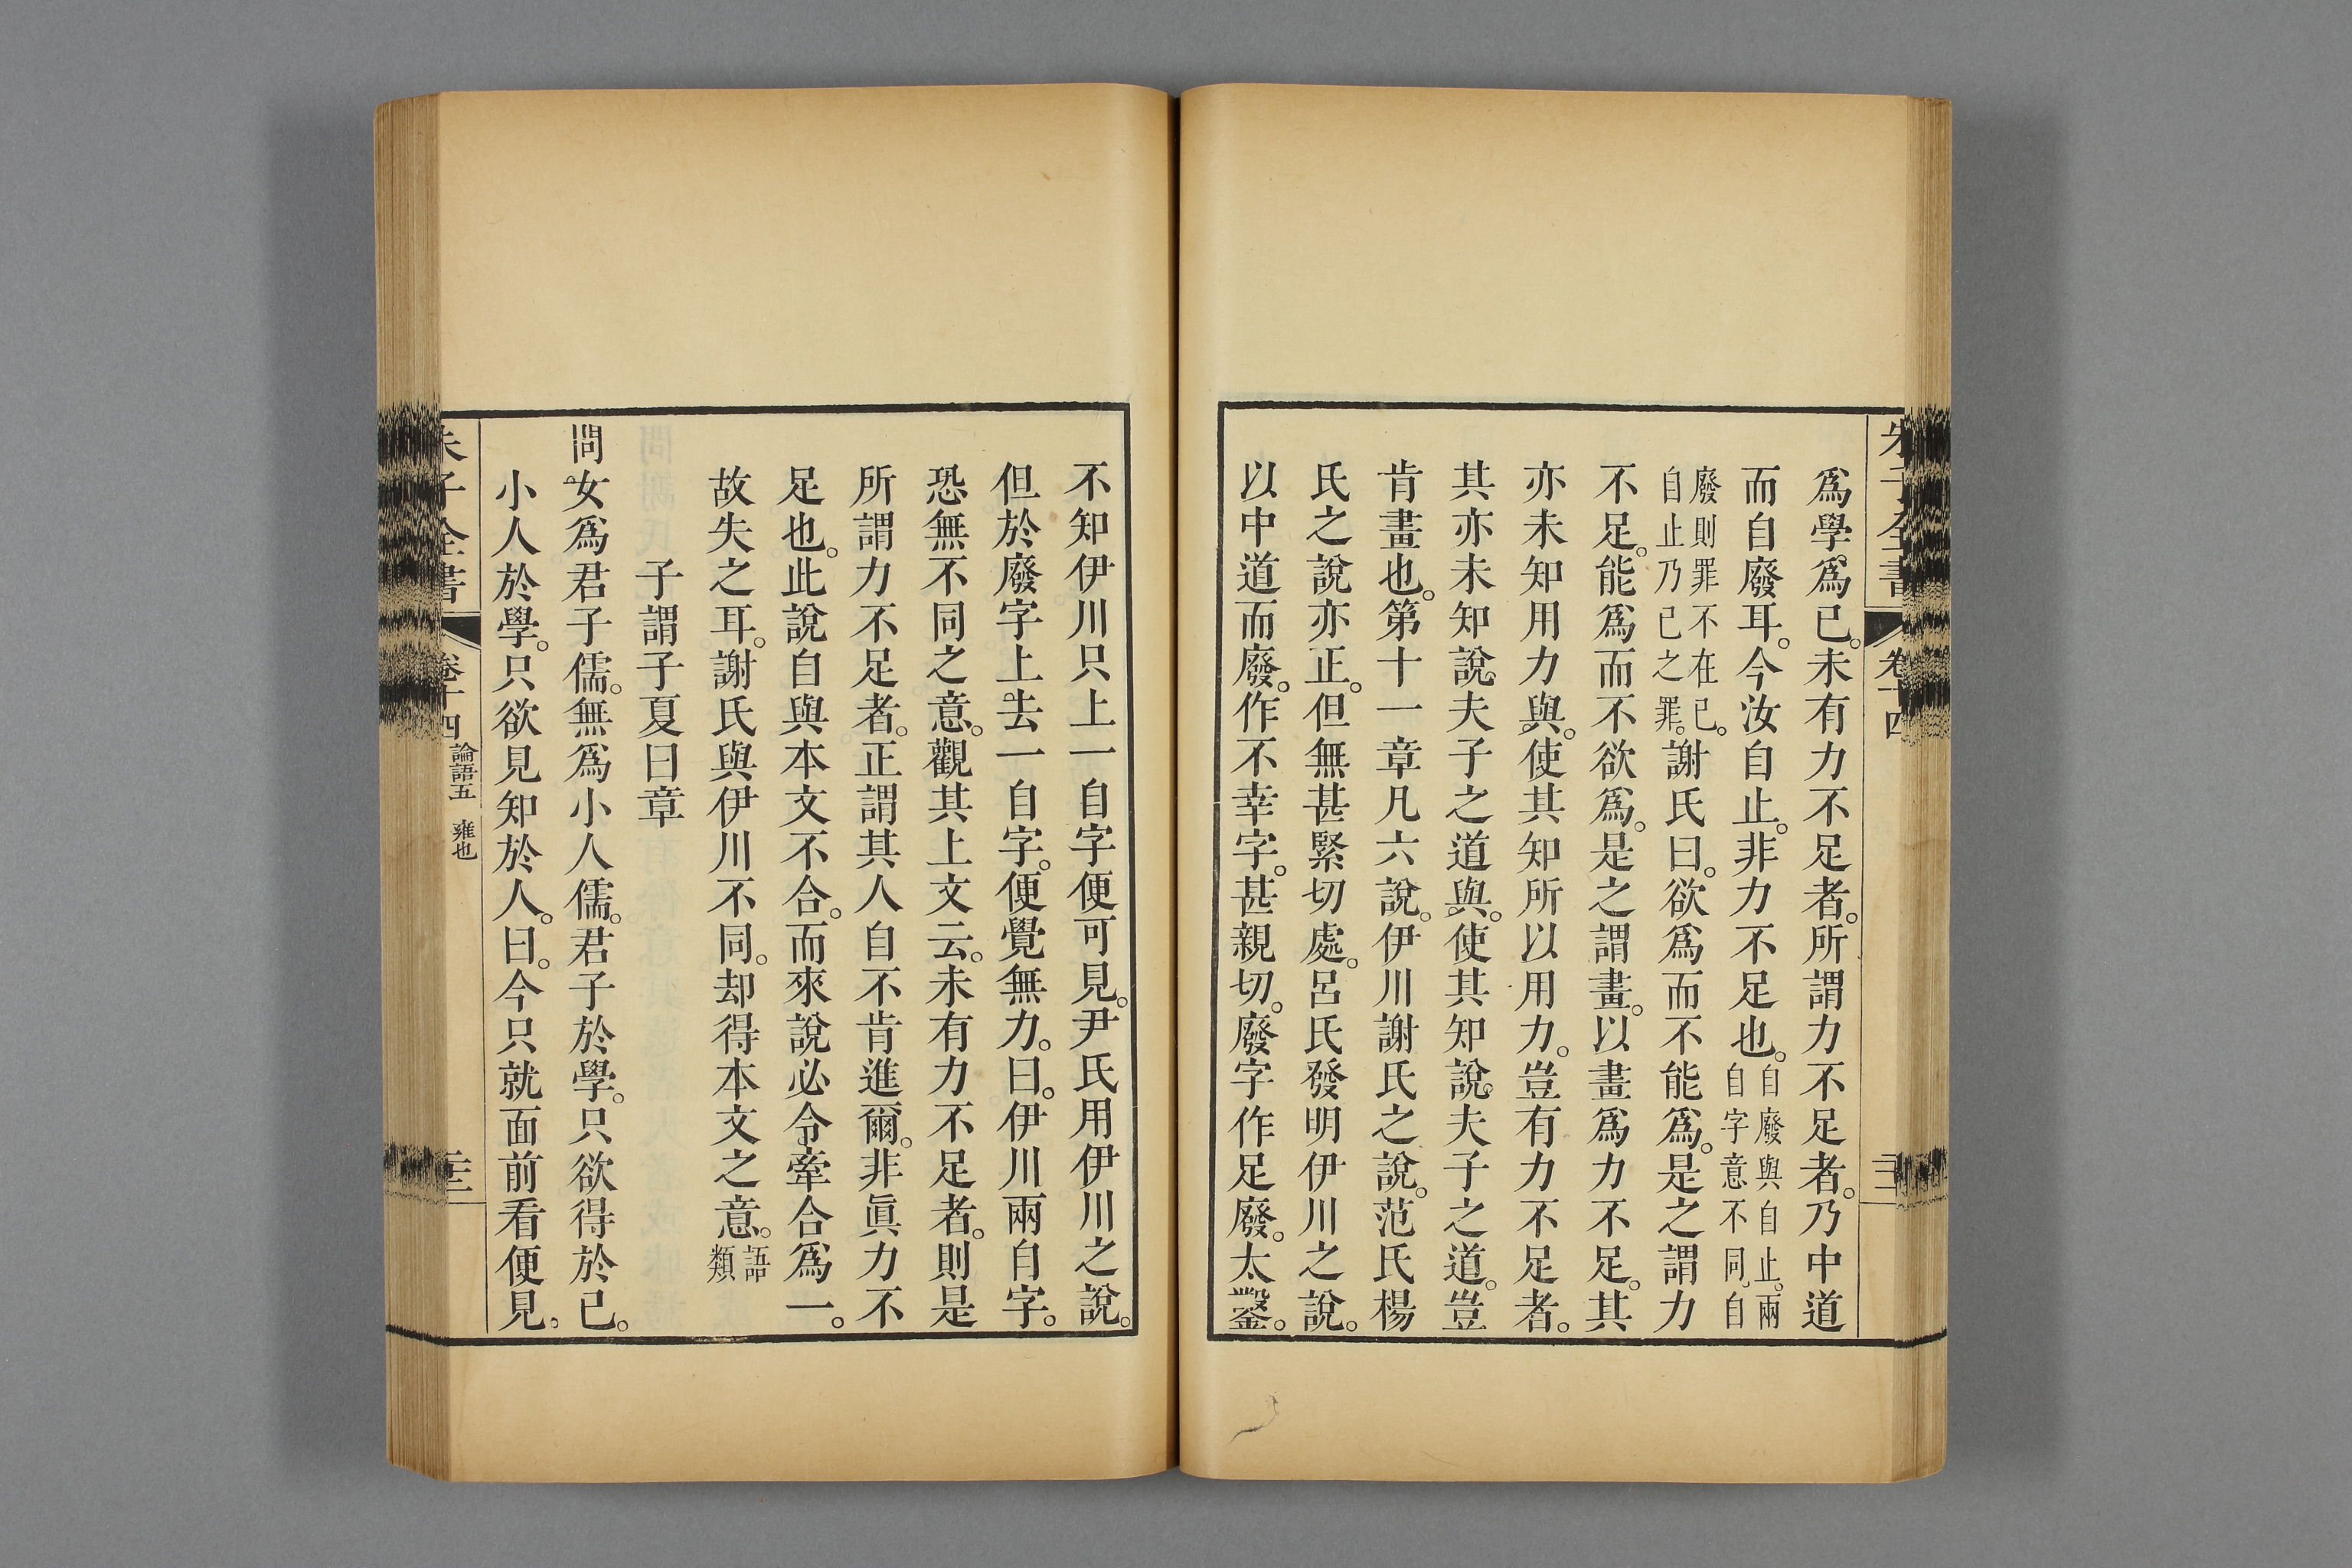 朱子全書 卷十四
爲學爲已。未有力不足者。所謂力不足者。乃中道
而自廢耳。今汝自止。非力不足也。自廢與自止。兩自字意不同。自
廢則罪不在已。自止乃已之罪。謝氏曰。欲爲而不能爲。是之謂力
不足。能爲而不欲爲。是之謂畫。以畫爲力不足。其
亦未知用力與。使其知所以用力。豈有力不足者。
其亦未知說夫子之道與。使其知說夫子之道。豈
肯畫也。第十一章凡六說。伊川謝氏之說。范氏楊
氏之說亦正。但無甚緊切處。呂氏發明伊川之說。
以中道而廢。作不幸字。甚親切。廢字作足廢。太鑿。
不知伊川只上一自字便可見。尹氏用伊川之說。
但於廢字上去一自字。便覺無力。曰。伊川兩自字。
恐無不同之意。觀其上文云。未有力不足者。則是
所謂力不足者。正謂其人自不肯進爾。非眞力不
足也。此說自與本文不合。而來說必令牽合爲一。
故失之耳。謝氏與伊川不同。却得本文之意。語類
子謂子夏曰章
問女爲君子儒。無爲小人儒。君子於學。只欲得於已。
小人於學。只欲見知於人。曰。今只就面前看便見。
朱子全書 卷十四 論語五 雍也